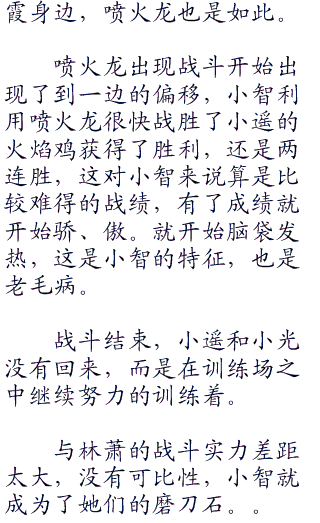 霞身边，喷火龙也是如此。
喷火龙出现战斗开始出
现了到一边的偏移，小智利
用喷火龙很快战胜了小遥的
火焰鸡获得了胜利，还是两
连胜，这对小智来说算是比
较难得的战绩，有了成绩就
开始骄、傲。就开始脑袋发
热，这是小智的特征，也是
老毛病。
战斗结束，小遥和小光
没有回来，而是在训练场之
中继续努力的训练着。
与林萧的战斗实力差距
太大，没有可比性，小智就
成为了她们的磨刀石。。